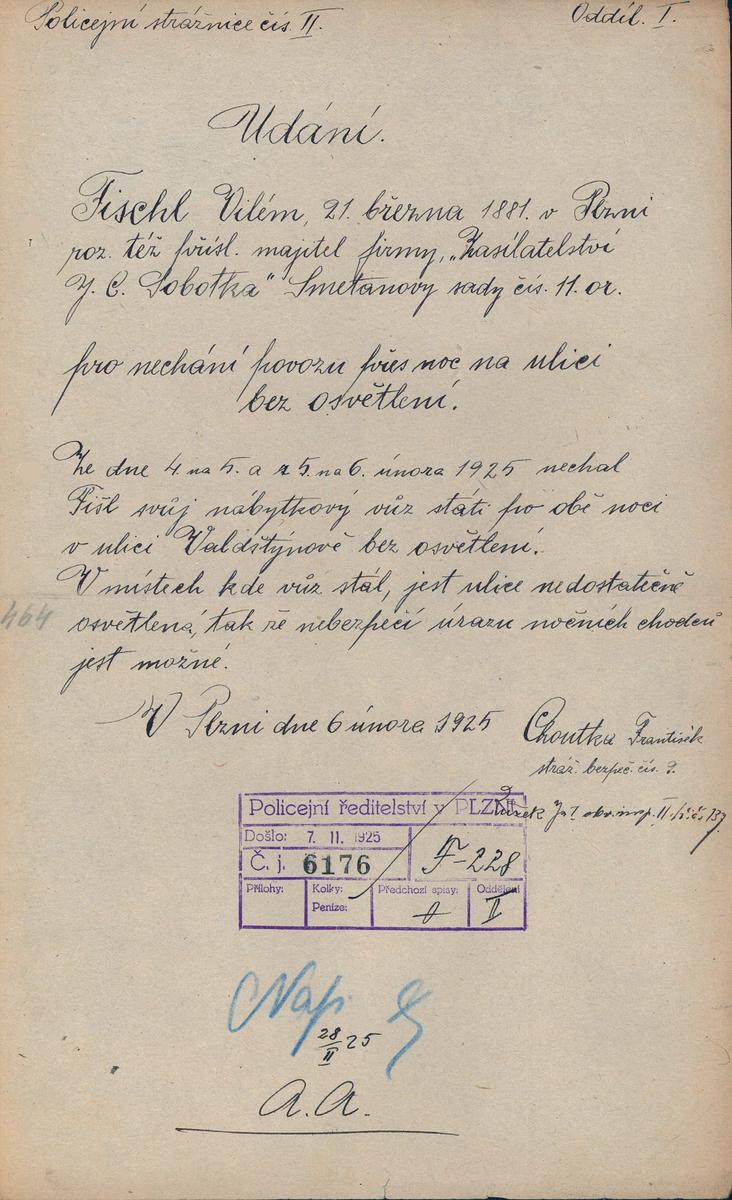 Policejní strážnice čís. II.
Oddíl. I.
Udání.
Fischl Vilém, 21. března 1881. v Plzni
roz. též přísl. majitel firmy, „Zasílatelství
J. C. Sobotka" Smetanovy sady čís. 11. or.
pro nechání povozu přes noc na ulici
bez osvětlení.
Ze dne 4. na 5. a z 5. na 6. února 1925 nechal
Fišl svůj nábytkový vůz státi po obě noci
v ulici Valdštýnově bez osvětlení.
V místech kde vůz stál, jest ulice nedostatečně
464
osvětlená, tak že nebezpečí úrazu nočních chodců
jest možné.
V Plzni dne 6 února 1925
Choutka František
stráž. bezpeč. čís. 9.
Policejní ředitelství v PLZNI
Došlo: 7. II. 1925
Č. j. 6176
F-228
Přílohy:
Kolky:
Peníze:
Předchozí spisy:
Oddělení
II
28/II 25
a. a.